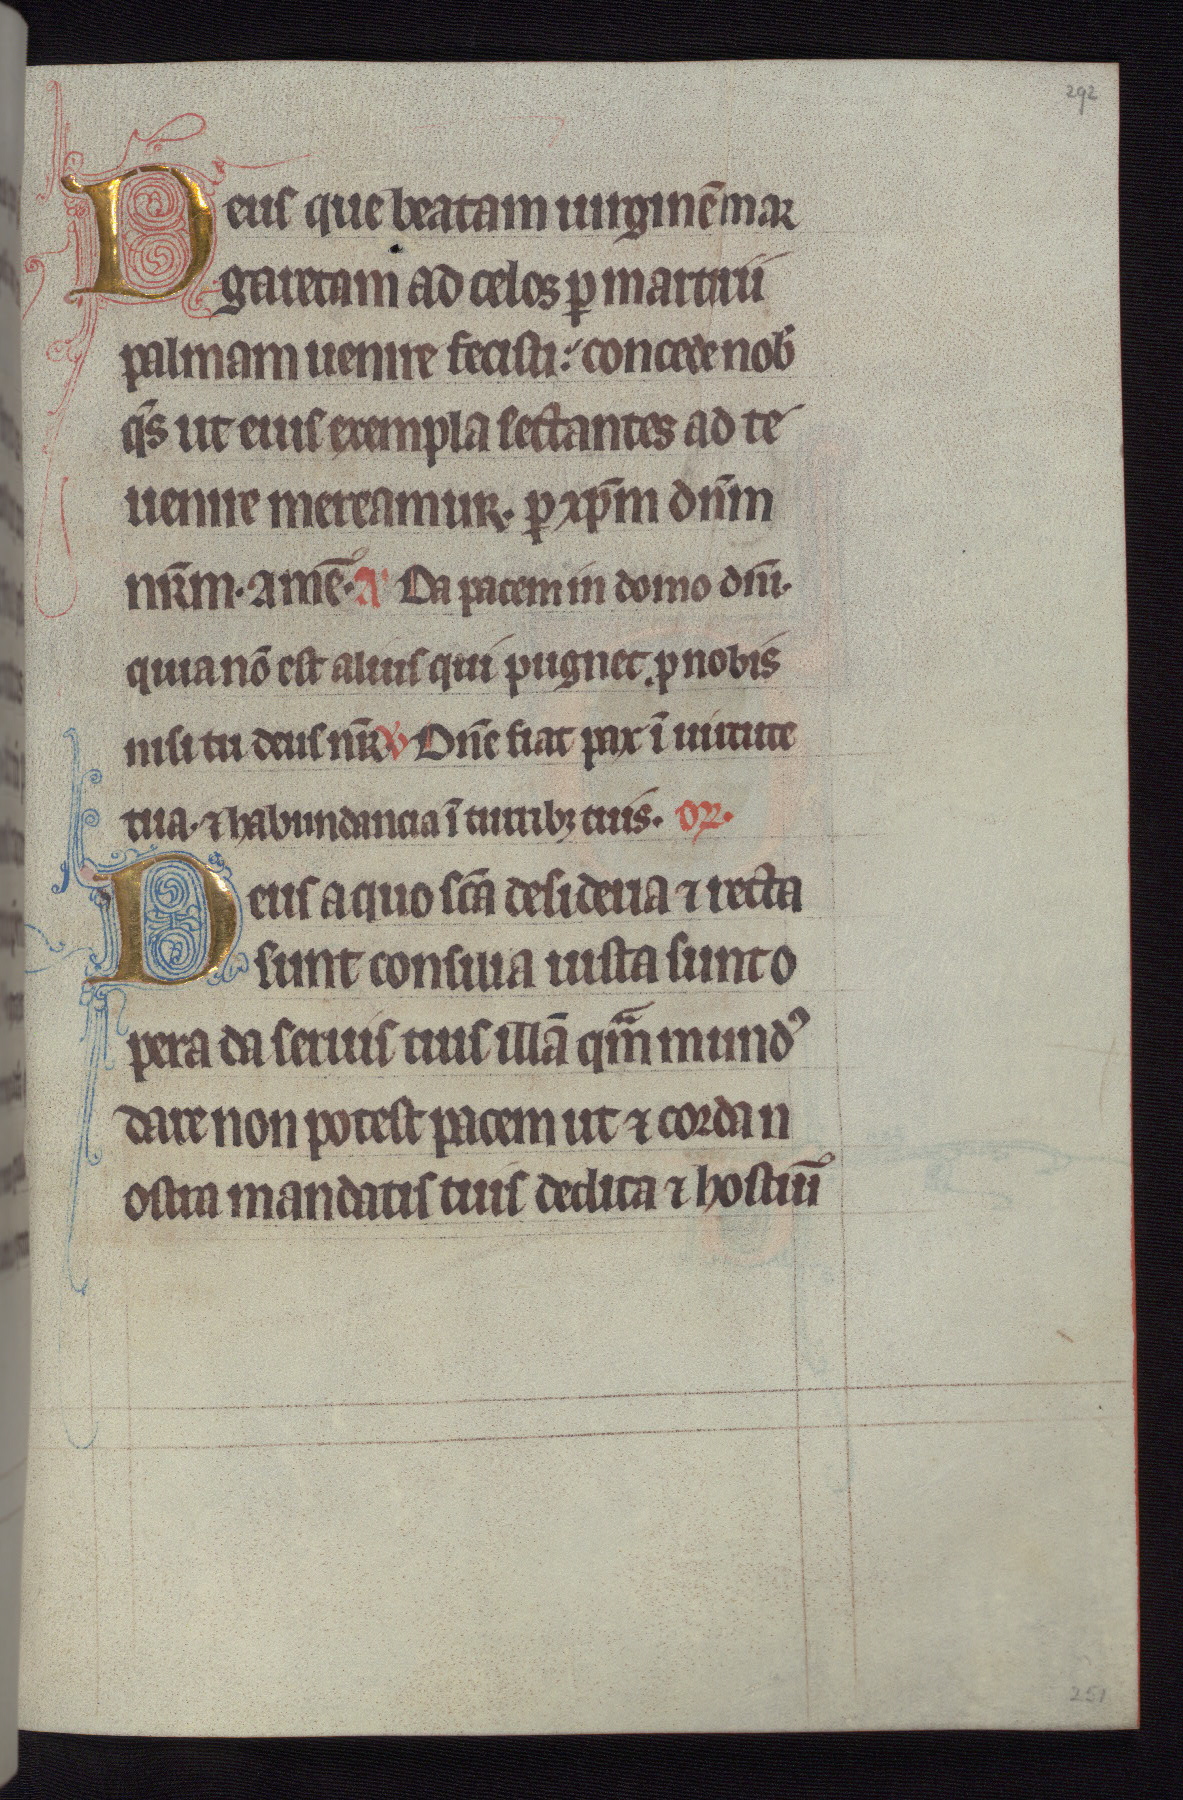 292
Deus que beatam uirginē mar
garetam ad celos ꝑ martirii
palmam uenire fecisti: concede nob̄
q̄s ut eius exempla sectantes ad te
uenire mereamur. ꝑ xp̄m dn̄m
nr̄m. amē. A Da pacem in domo dn̄i.
quia nō est alius qui pugnet. ꝓ nobis
nisi tu deus nr̄ V Dn̄e fiat pax ī uirtute
tua. ⁊ habundancia ī turribꝫ tuis. oꝝ.
Deus a quo sc̄a desideria ⁊ recta
sunt consiuia iusta sunt o
pera da seruis tuis illā qm̄ mundꝰ
dare non potest pacem ut ⁊ corda n
ostra mandatis tuis dedita ⁊ hostiū
251